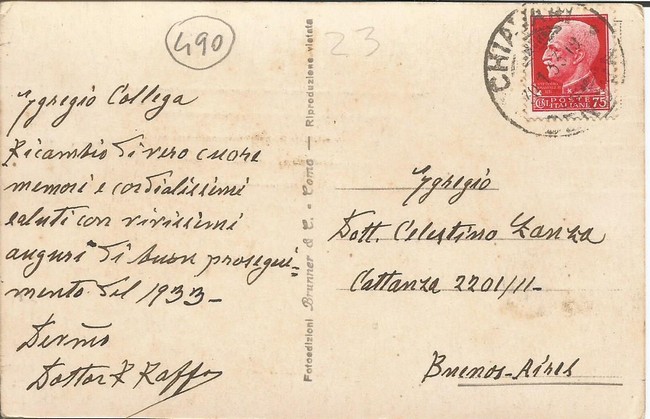 490
23
Egregio Collega
Ricambio di vero cuore
memori e cordialissimi
saluti con vivissimi
auguri di buon prosegui-
mento del 1933-
Dermo
Dottor R Raffo
Fotoedizioni Brunner & C. - Como — Riproduzione vietata
CHIAVARI
POSTE ITALIANE
CENT 75
Egregio
Dott. Celestino Zanza
Cattanza 2201/11-
Buenos-Aires